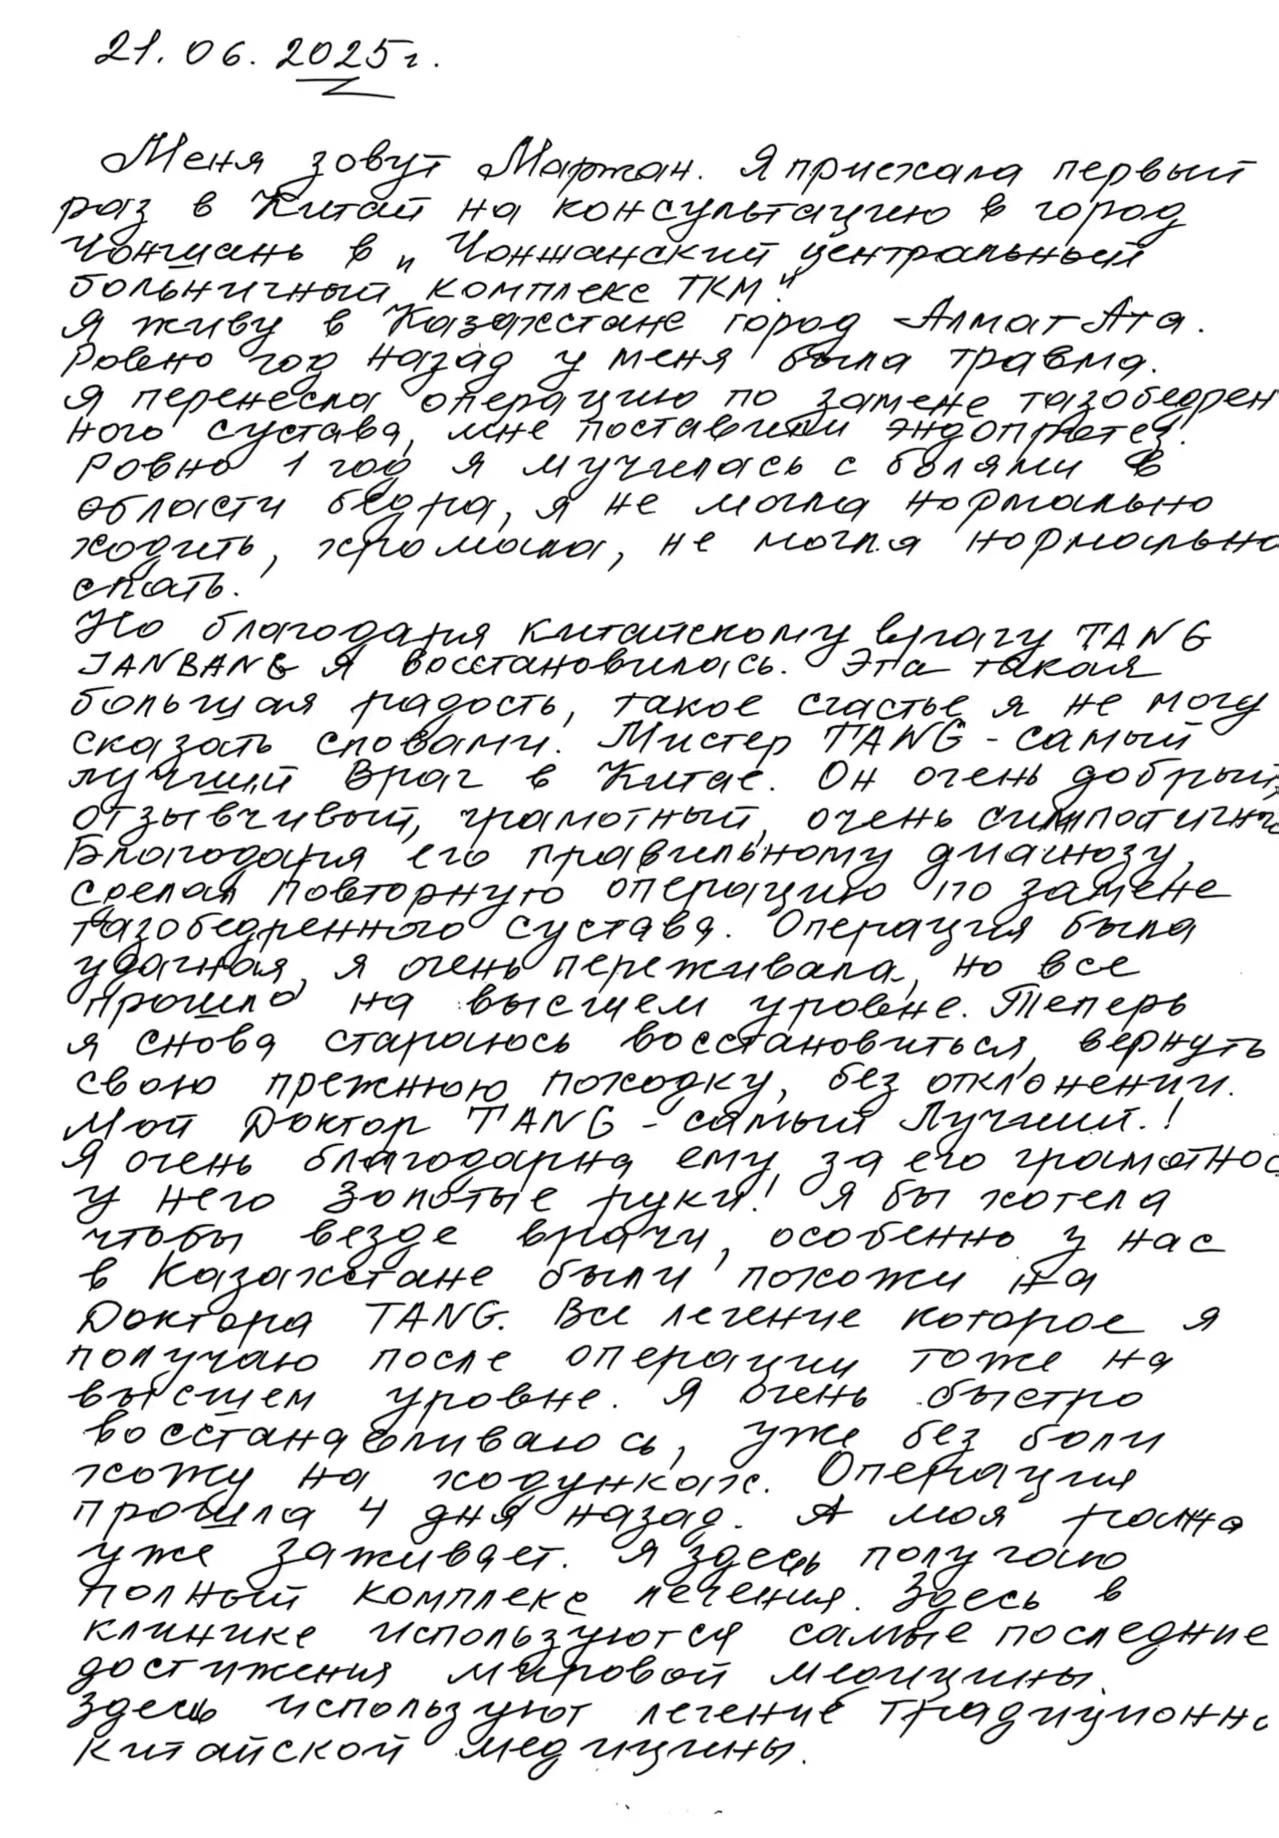 21. 06. 2025г.
Меня зовут Маржан. Я приехала первый
раз в Китай на консультацию в город
Чоншань в „Чоншанский центральный
больничный комплекс ТКМ".
Я живу в Казахстане город Алмат Ата.
Ровно год назад у меня была травма.
Я перенесла операцию по замене тазобедрен
ного сустава, мне поставили эндопротез.
Ровно 1 год я мучилась с болями в
области бедра, я не могла нормально
ходить, хромала, не могла нормально
спать.
Но благодаря китайскому врачу TANG
JANBANG я восстановилась. Эта такая
большая радость, такое счастье я не могу
сказать словами. Мистер TANG - самый
лучший Врач в Китае. Он очень добрый,
отзывчивый, грамотный, очень симпатичн
Благодаря его правильному диагнозу,
сделал повторную операцию по замене
тазобедренного сустава. Операция была
удачная, я очень переживала, но все
прошло на высшем уровне. Теперь
я снова стараюсь восстановиться, вернуть
свою прежнюю походку, без отклонении.
Мой Доктор TANG - самый Лучший.!
Я очень благодарна ему за его грамотнос
у него золотые руки! Я бы хотела
чтобы везде врачи, особенно у нас
в Казахстане были похожи на
Доктора TANG. Все лечение которое я
получаю после операции тоже на
высшем уровне. Я очень быстро
восстанавливаюсь, уже без боли
хожу на ходунках. Операция
прошла 4 дня назад. А моя рана
уже заживает. Я здесь получаю
полный комплекс лечения. Здесь в
клинике используются самые последние
достижения мировой медицины.
Здесь используют лечение традиционно
китайской медицины.